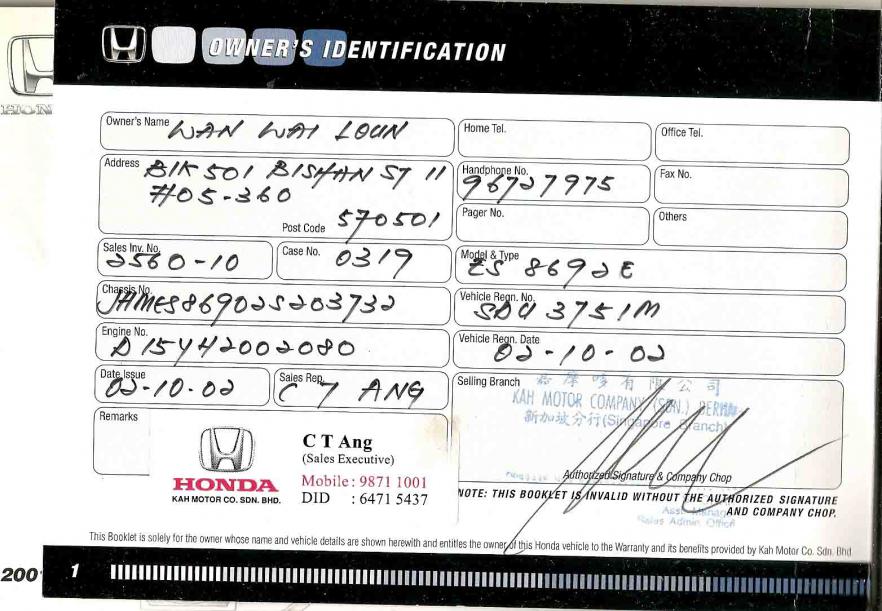 OWNER'S IDENTIFICATION
Owner's Name WAN WAI LOUN
Home Tel.
Office Tel.
Address BLK 501 BISHAN ST 11
#05-360
Post Code 570501
Handphone No. 96727975
Fax No.
Pager No.
Others
Sales Inv. No. 2560-10
Case No. 0319
Model & Type ES 8692E
Chassis No. JHMES86902S203732
Vehicle Regn. No. 3751M
Engine No. D15Y42002080
Vehicle Regn. Date 02-10-02
Date Issue 02-10-02
Sales Rep. C T ANG
Selling Branch
有限公司
KAH MOTOR COMPANY (SDN.) BERHAD
新加坡分行(Singapore Branch)
Authorized Signature & Company Chop
Remarks
HONDA
KAH MOTOR CO. SDN. BHD.
C T Ang
(Sales Executive)
Mobile : 9871 1001
DID : 6471 5437
NOTE: THIS BOOKLET IS INVALID WITHOUT THE AUTHORIZED SIGNATURE
AND COMPANY CHOP.
Asst. Manager
Sales Admin. Office
This Booklet is solely for the owner whose name and vehicle details are shown herewith and entitles the owner of this Honda vehicle to the Warranty and its benefits provided by Kah Motor Co. Sdn. Bhd.
HON
200
1